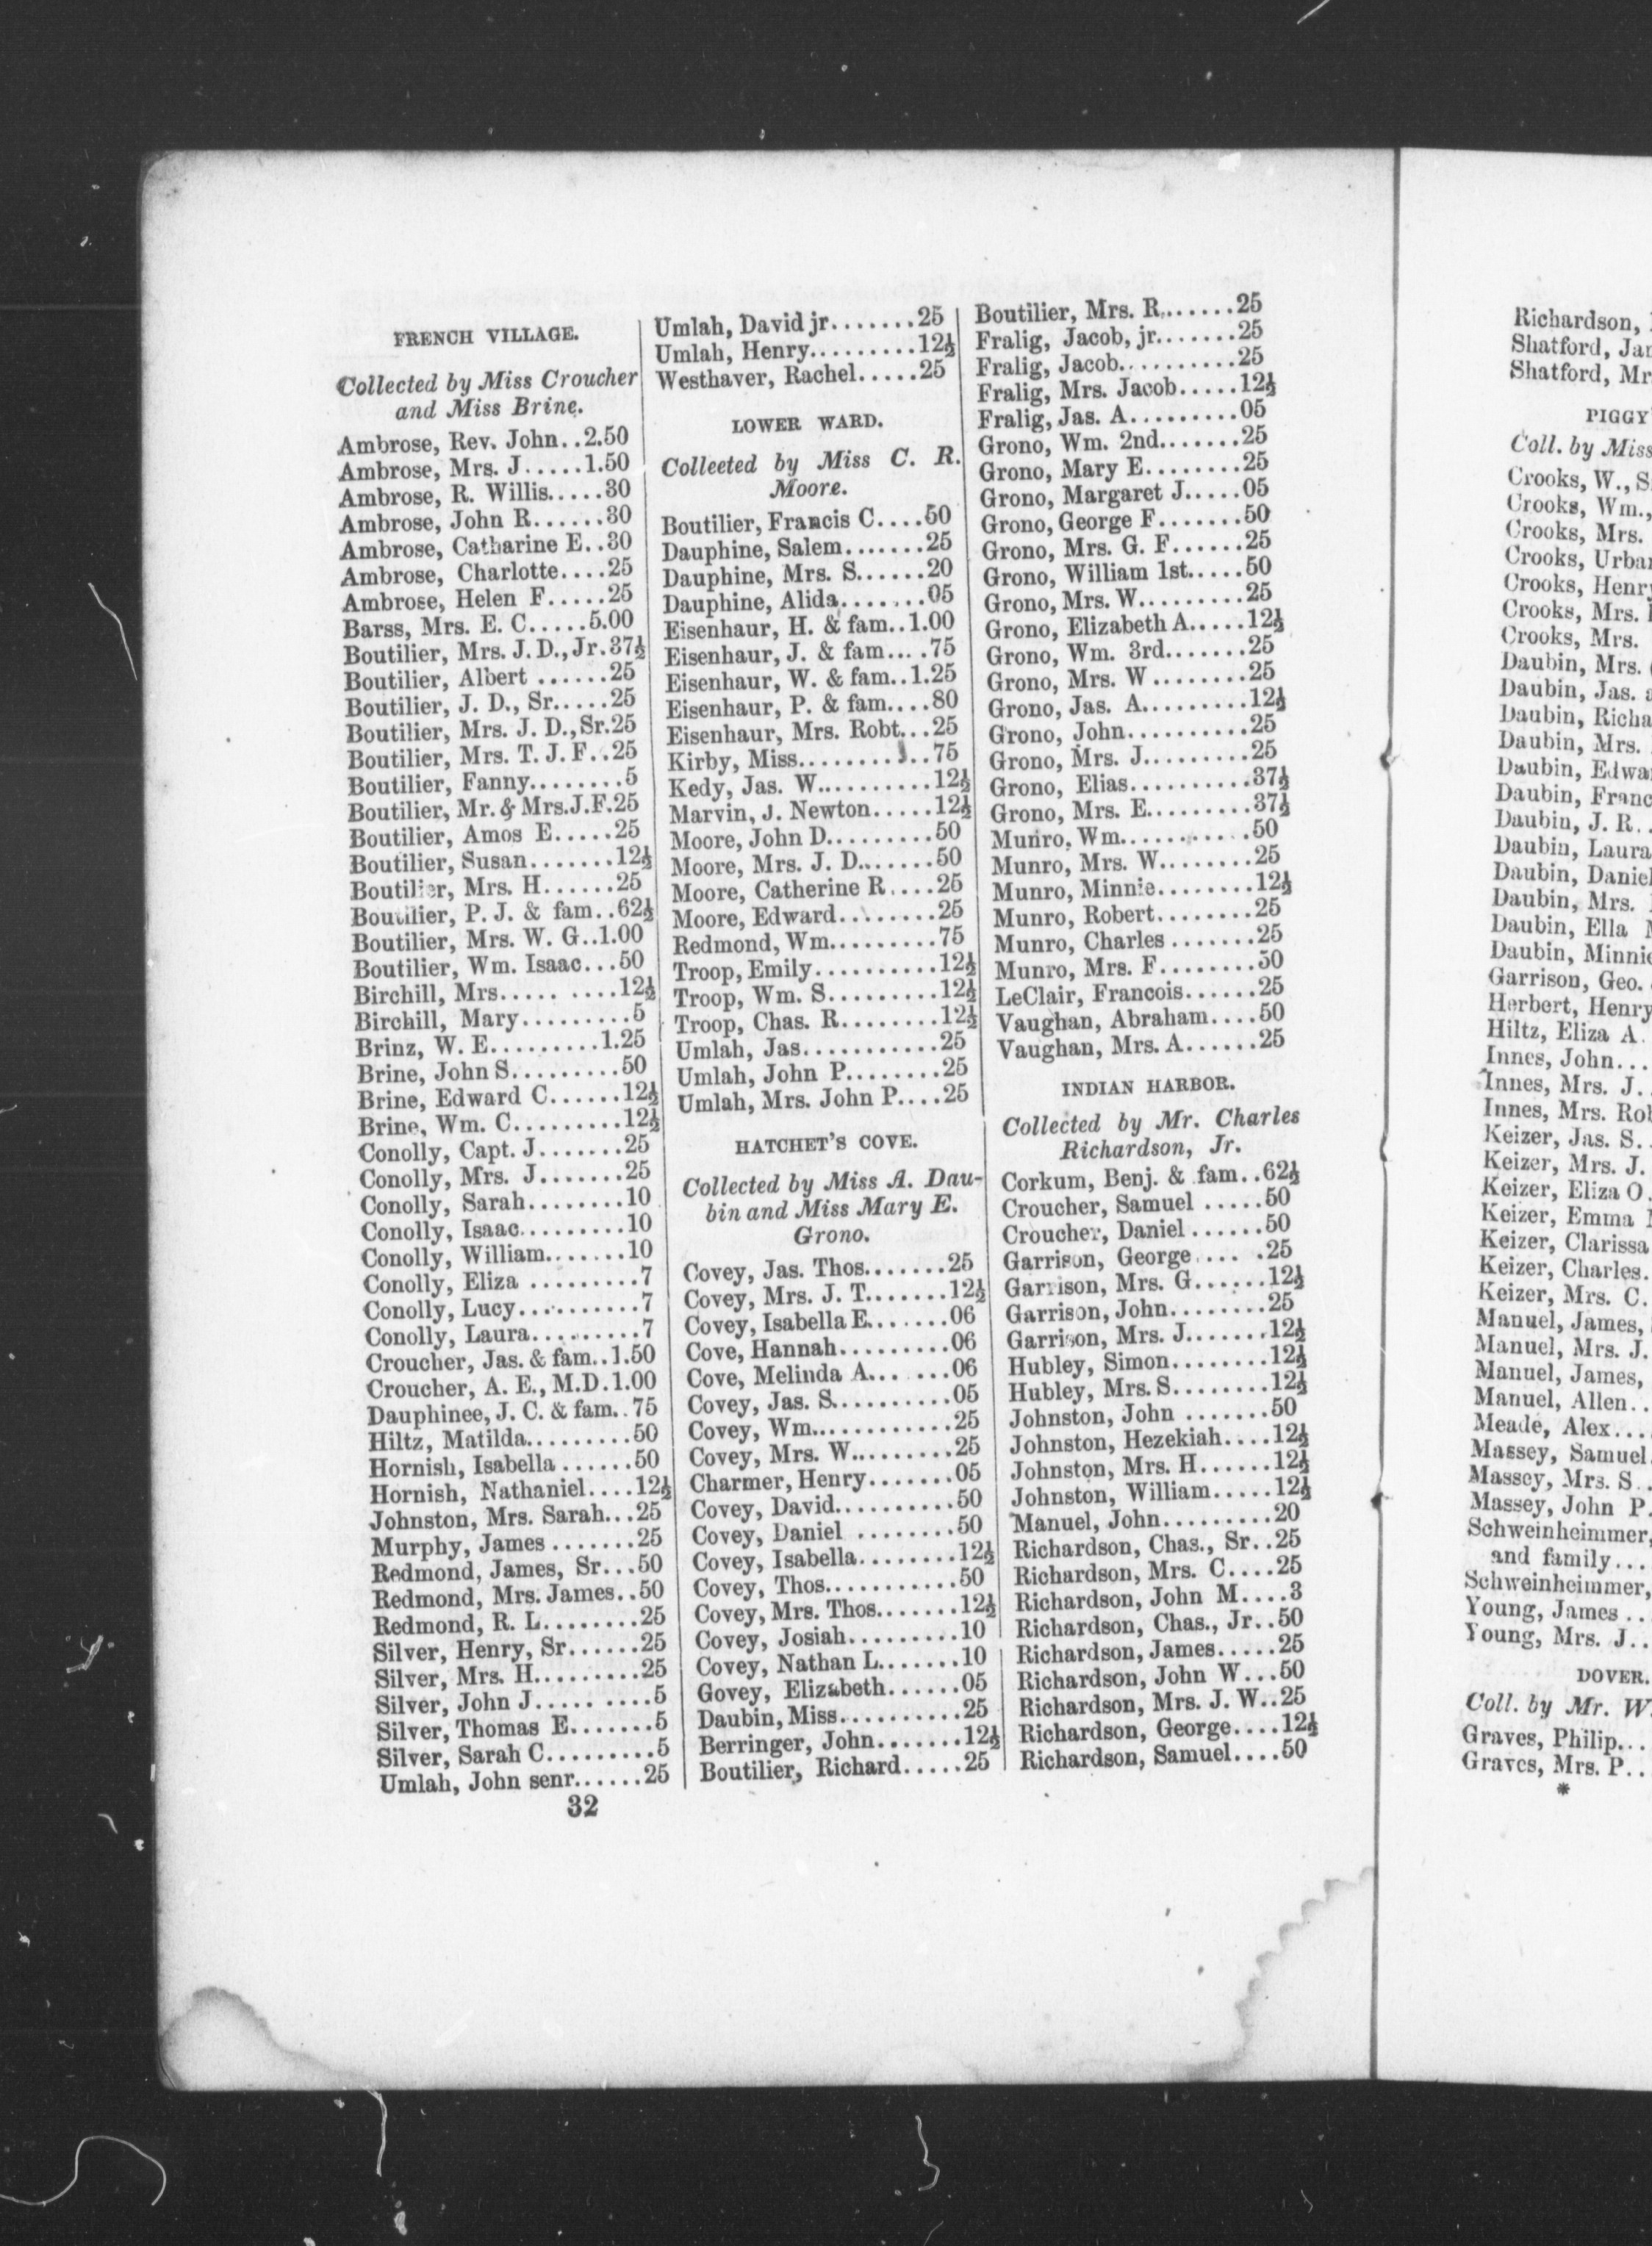 FRENCH VILLAGE.
Collected by Miss Croucher
and Miss Brine.
Ambrose, Rev. John..2.50
Ambrose, Mrs. J.....1.50
Ambrose, R. Willis.....30
Ambrose, John R......30
Ambrose, Catharine E..30
Ambrose, Charlotte....25
Ambrose, Helen F.....25
Barss, Mrs. E. C.....5.00
Boutilier, Mrs. J. D., Jr.37½
Boutilier, Albert ......25
Boutilier, J. D., Sr.....25
Boutilier, Mrs. J. D., Sr.25
Boutilier, Mrs. T. J. F..25
Boutilier, Fanny........5
Boutilier, Mr. & Mrs.J.F.25
Boutilier, Amos E.....25
Boutilier, Susan.......12½
Boutilier, Mrs. H......25
Boutilier, P. J. & fam..62½
Boutilier, Mrs. W. G..1.00
Boutilier, Wm. Isaac...50
Birchill, Mrs..... ....12½
Birchill, Mary.........5
Brinz, W. E.........1.25
Brine, John S.........50
Brine, Edward C......12½
Brine, Wm. C.........12½
Conolly, Capt. J.......25
Conolly, Mrs. J.......25
Conolly, Sarah........10
Conolly, Isaac.........10
Conolly, William.......10
Conolly, Eliza .........7
Conolly, Lucy..........7
Conolly, Laura.........7
Croucher, Jas. & fam..1.50
Croucher, A. E., M.D.1.00
Dauphinee, J. C. & fam..75
Hiltz, Matilda.........50
Hornish, Isabella ......50
Hornish, Nathaniel....12½
Johnston, Mrs. Sarah...25
Murphy, James .......25
Redmond, James, Sr...50
Redmond, Mrs. James..50
Redmond, R. L........25
Silver, Henry, Sr......25
Silver, Mrs. H.........25
Silver, John J..... ....5
Silver, Thomas E.......5
Silver, Sarah C.........5
Umlah, John senr......25
32
Umlah, David jr.......25
Umlah, Henry.........12½
Westhaver, Rachel.....25
LOWER WARD.
Colleeted by Miss C. R.
Moore.
Boutilier, Francis C....50
Dauphine, Salem.......25
Dauphine, Mrs. S......20
Dauphine, Alida.......05
Eisenhaur, H. & fam..1.00
Eisenhaur, J. & fam....75
Eisenhaur, W. & fam..1.25
Eisenhaur, P. & fam....80
Eisenhaur, Mrs. Robt...25
Kirby, Miss...........75
Kedy, Jas. W..........12½
Marvin, J. Newton.....12½
Moore, John D.........50
Moore, Mrs. J. D.......50
Moore, Catherine R....25
Moore, Edward........25
Redmond, Wm.........75
Troop, Emily..........12½
Troop, Wm. S.........12½
Troop, Chas. R........12½
Umlah, Jas............25
Umlah, John P........25
Umlah, Mrs. John P....25
HATCHET'S COVE.
Collected by Miss A. Dau-
bin and Miss Mary E.
Grono.
Covey, Jas. Thos.......25
Covey, Mrs. J. T.......12½
Covey, Isabella E.......06
Cove, Hannah.........06
Cove, Melinda A... ...06
Covey, Jas. S..........05
Covey, Wm............25
Covey, Mrs. W.........25
Charmer, Henry.......05
Covey, David..........50
Covey, Daniel ........50
Covey, Isabella........12½
Covey, Thos...........50
Covey, Mrs. Thos.......12½
Covey, Josiah.........10
Covey, Nathan L.......10
Govey, Elizabeth......05
Daubin, Miss..........25
Berringer, John.......12½
Boutilier, Richard.....25
Boutilier, Mrs. R.......25
Fralig, Jacob, jr.......25
Fralig, Jacob..........25
Fralig, Mrs. Jacob.....12½
Fralig, Jas. A.........05
Grono, Wm. 2nd.......25
Grono, Mary E........25
Grono, Margaret J.....05
Grono, George F.......50
Grono, Mrs. G. F......25
Grono, William 1st.....50
Grono, Mrs. W.........25
Grono, Elizabeth A.....12½
Grono, Wm. 3rd.......25
Grono, Mrs. W ........25
Grono, Jas. A.........12½
Grono, John...........25
Grono, Mrs. J.........25
Grono, Elias..........37½
Grono, Mrs. E.........37½
Munro, Wm...........50
Munro, Mrs. W........25
Munro, Minnie........12½
Munro, Robert........25
Munro, Charles .......25
Munro, Mrs. F........50
LeClair, Francois......25
Vaughan, Abraham....50
Vaughan, Mrs. A......25
INDIAN HARBOR.
Collected by Mr. Charles
Richardson, Jr.
Corkum, Benj. & fam..62½
Croucher, Samuel .....50
Croucher, Daniel ......50
Garrison, George.... .25
Garrison, Mrs. G......12½
Garrison, John........25
Garrison, Mrs. J.......12½
Hubley, Simon........12½
Hubley, Mrs. S........12½
Johnston, John .......50
Johnston, Hezekiah....12½
Johnston, Mrs. H......12½
Johnston, William.....12½
Manuel, John.........20
Richardson, Chas., Sr..25
Richardson, Mrs. C....25
Richardson, John M....3
Richardson, Chas., Jr..50
Richardson, James.....25
Richardson, John W...50
Richardson, Mrs. J. W..25
Richardson, George....12½
Richardson, Samuel....50
Richardson,
Shatford, Jan
Shatford, Mr
PIGGY'
Coll. by Miss
Crooks, W., S
Crooks, Wm.,
Crooks, Mrs.
Crooks, Urban
Crooks, Henry
Crooks, Mrs.
Crooks, Mrs.
Daubin, Mrs.
Daubin, Jas.
Daubin, Richa
Daubin, Mrs.
Daubin, Edwa
Daubin, Franc
Daubin, J. R..
Daubin, Laura
Daubin, Daniel
Daubin, Mrs.
Daubin, Ella
Daubin, Minnie
Garrison, Geo.
Herbert, Henry
Hiltz, Eliza A.
Innes, John...
Innes, Mrs. J..
Innes, Mrs. Rob
Keizer, Jas. S..
Keizer, Mrs. J.
Keizer, Eliza O.
Keizer, Emma
Keizer, Clarissa
Keizer, Charles.
Keizer, Mrs. C.
Manuel, James,
Manuel, Mrs. J.
Manuel, James,
Manuel, Allen..
Meade, Alex...
Massey, Samuel
Massey, Mrs. S..
Massey, John P.
Schweinheimmer,
and family...
Schweinheimmer,
Young, James ..
Young, Mrs. J..
DOVER.
Coll. by Mr. W.
Graves, Philip...
Graves, Mrs. P..
*